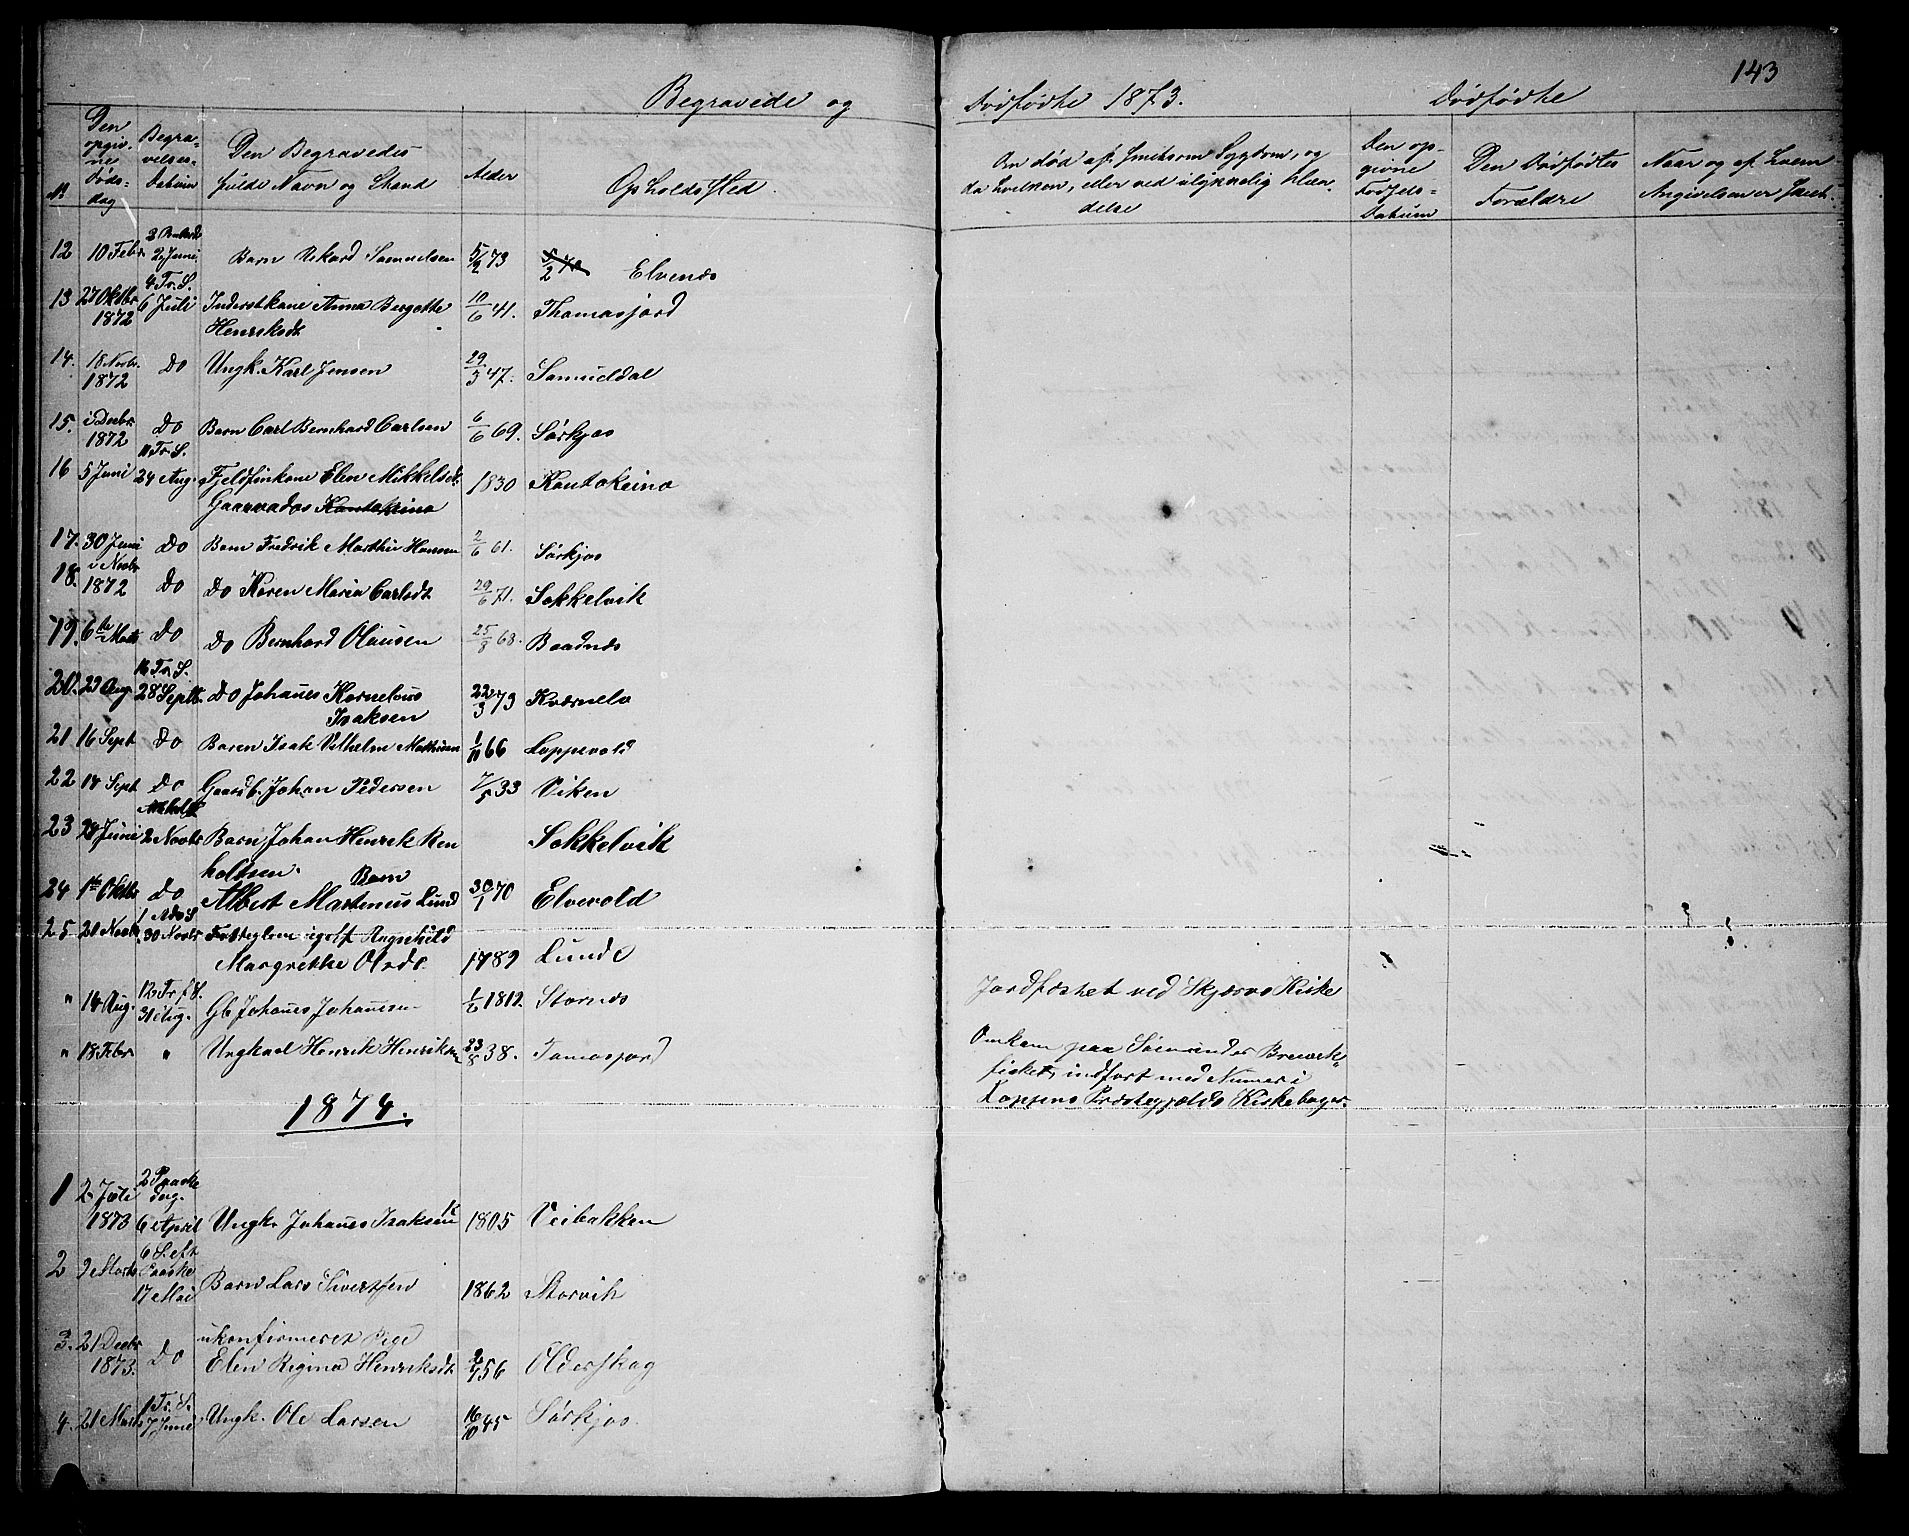 143
Begravede og Dødfødte 1873. Dødfødte
No Den opgivne Døds-dag Begravelses-Datum Den Begravedes fulde Navn og Stand Alder Opholdssted. Om død af smitsom Sygdom, og da hvilken, eller ved ulykkelig Hændelse Den opgivne Fødsels-Datum Den Dødfødtes Forældre Naar og af hvem Angivelsen er skeet.
12 10 Febr 2 Juni Barn Rikard Samuelsen 5/2 73 Elvenæs
4 Tr. S.
13 27 Oktbr 1872 6 Juli Inderstkone Anna Bergette Henriksdt 10/6 41. Thomasjord
14. 18 Novbr. 1872 Do Ungk. Karl Jensen 29/3 47. Samueldal
15. i Decbr 1872 Do Barn Carl Bernhard Carlsen 6/6 69. Sørkjos
11 Tr. S.
16 5 Juni 24 Aug. Fjeldfinkone Elen Mikkelsdt. Gaarvados Kautokeino 1830 Kautokeino
17. 30 Juni Do Barn Fredrik Marthin Hansen 2/6 61. Sørkjos
18. i Novbr 1872 Do Do Karen Maria Carlsdt 29/6 71. Sokkelvik
19. 6te Marts Do Do Bernhard Olausen 25/8 68. Baadnæs
16 Tr. S.
20. 23 Aug. 28 Septbr. Do Johanes Kornelius Isaksen 22/3 73 Kvænelv
21 16 Sept Do Baren Isak Vilhelm Mathisen 1/11 66 Loppevold
22 14 Sept Do Gaardb. Johan Pedersen 7/5 33 Viken
23 28 Juni 2 Novbr Barn Johan Henrik Renholdsen. Sokkelvik
24 1te Oktbr Do Albert Martenus Lund Barn 30/1 70 Elvevold
1 Adv. S
25 20 Novbr 30 Novbr Fattiglem Margrethe Olsdt. 1789 Lunde
12 Tr. f S.
" 14 Aug. 31 Aug. Gb Johanes Johansen 1/6 1812. Stornæs Jordfæstet ved Skjervø Kirke
" 18 Febr " Ungkarl Henrik Henriksen 23/8 38. Tomasjord Omkom paa Søen under Brevik-fisket, indført med Numer i Loppens Præstegjælds Kirkebøger.
1874.
1 2 Juli 1873 2 Paaske dag. 6 April Ungk. Johanes Isaksen 1805 Veibakken
2 9 Marts 6 S. eft Paaske 17 Mai Barn Lars Sivertsen 1862 Storvik
3. 21 Decbr 1873. Do ukonfirmeret Pige Elen Regina Henriksdt 56 Olderskog
4. 21 Marts 1 Tr. S. 7 Juni Ungk. Ole Larsen 16/10 45 Sørkjos.